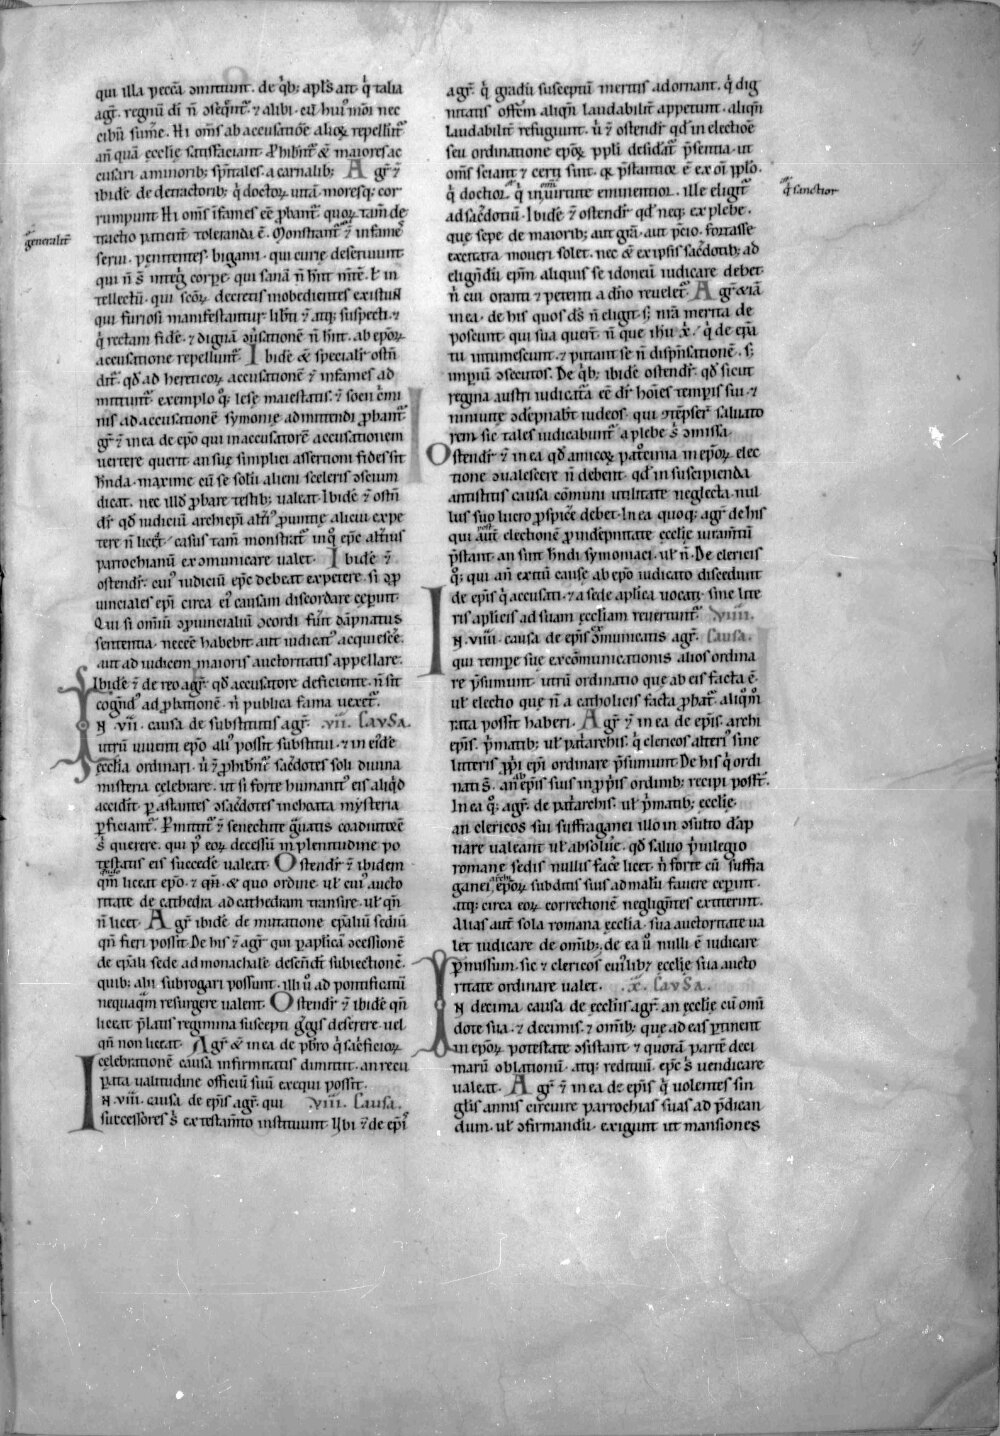 qui illa peccā ōmittunt. de qͥb; apl's ait qͥ talia
agūt. regnū di n̄ ɔseqn̄tˀ. ⁊ alibi. cū huiꝰ mōi nec
cibū sumē. Hi om̄s ab accusatiōe alioꝝ repellūtˀ
an̄ quā ęcclię satisfaciant. ꝓhibn̄tˀ & maiores ac
cusari a minorib; sp̄itales. a carnalib; Agr̄ ⁊
ibidē de detractorib; qͥ doctoꝝ uitā moresq; cor
rumpunt. Hi om̄s īfames eē ꝓbantˀ. quoꝝ tam̄ de
tractio patient̄ toleranda ē. Monstrantˀ ⁊ infames
generalit̄
serui. penitentes. bigami. qui curię deseruiunt.
qui n̄ s̄ inteḡ corpe. qui sanā n̄ hn̄t mītē. ł in
tellectū. qui scōꝝ decretis inobedientes existunt
qui furiosi manifestantur. lib̄ti ⁊ atq; suspecti. ⁊
qͥ rectam fidē. ⁊ dignā ɔuersationē n̄ hn̄t. ab ep̄oꝝ
accusatione repelluntˀ. Ibidē & specialit̄ ostn̄
ditˀ. qd̄ ad hereticoꝝ accusationē ⁊ infames ad
mittuntˀ. exemplo qͦ; lesę maiestatis. ⁊ socii cͥmi
nis ad accusationē symonię admittendi ꝓbantˀ.
Agr̄ ⁊ in ea de ep̄o qui in accusatorē accusationem
uertere querit. an suę simplici assertioni fides sit
hn̄da. maxime cū se solū alieni sceleris ɔscium
dicat. nec illd̄ ꝓbare testib; ualeat. Ibidē ⁊ ostn̄
ditˀ qd̄ iudiciū archiep̄i altͥꝰ ꝓuincię alicui expe
tere n̄ licet. casus tam̄ monstratˀ in qͦ ep̄c altͥius
parrochianū excōmunicare ualet. Ibidē ⁊
ostenditˀ. cuiꝰ iudiciū ep̄c debeat expetere. si ɔꝓ
uinciales ep̄i circa eiꝰ causam discordare cęperint.
Qui si omniū ɔꝓuincialiū ɔcordi fūit dāpnatus
sententia. necesse habebit. aut iudicatꝰ acquiescē.
aut ad iudicem maioris auctoritatis appellare.
Ibidē ⁊ de reo agr̄. qd̄ accusatore deficiente. n̄ sit
cogendꝰ ad ꝓbationē. n̄ publica fama uexetˀ.
IN .vii. causa de substitutis agr̄. .vii. CaVSa.
utrū uiuenti ep̄o aliꝰ possit substitui. ⁊ in eidē
ęcclia ordinari. ū ⁊ ꝓhibn̄tˀ sac̄dotes soli diuina
misteria celebrare. ut si forte humanitꝰ eis aliqͥd
acciderit. ꝑ astantes ɔsac̄dotes inchoata mysteria
ꝑficiantˀ. Pͥmittitˀ ⁊ senectute gͣuatis coadiutorē
s̄ querere. qui pꝰ eoꝝ decessū in plenitudine po
testatis eis succede ualeat. Ostenditˀ ⁊ ibidem
qn̄ liceat ep̄o. ⁊ qn̄. & quo ordine. ut̄ cuiꝰ aucto
ritate de cathedra ad cathedram transire. ut̄ qn̄
n̄ licet. Agr̄ ibidē de mutatione ep̄aliū sediū
qn̄ fieri possit. De his ⁊ agr̄ qui ꝑ aplicā ɔcessionē
de ep̄ali sede ad monachalē descendt̄ subiectionē.
quib; alii subrogari possunt. illi ū ad pontificatū
nequaqͣm resurgere ualent. Ostenditˀ ⁊ ibidē qn̄
liceat p̄latis regimina suscepti gͤgis deserere. uel
qn̄ non liceat. Agr̄ & in ea de pb̄ro qͥ sacͥficioꝝ
celebrationē causa infirmitatis dimittit. an recu
perata ualitudine officiū suū exequi possit.
IN .viii. causa de ep̄is agr̄. qui .viii. Causa.
successores s̄ ex testamto instituunt. Vbi ⁊ de ep̄i
agr̄. qͥ gradū susceptū meritis adornant. qͥ dig
nitatis offēm aliqn̄ laudabilit̄ appetunt. aliqn̄
laudabilit̄ refugiunt. ū ⁊ ostenditˀ qd̄ in electiōe
seu ordinatione ep̄oꝝ ppli desideratˀ p̄sentia. ut
om̄s sciant ⁊ certi sint. qͥ p̄stantior ē ex oī pplo.
qͥ doctior. qͥ sanctior
qͥ in om̄i uirtute eminentior. ille eligitˀ
ad sac̄dotiū. Ibidē ⁊ ostenditˀ qd̄ neq; ex plebe.
que sepe de maiorib; aut grā. aut p̄cio. forrasse
excitata moueri solet. nec & ex ipsis sac̄dotib; ad
eligendū ep̄m aliquis se idoneū iudicare debet.
n̄ cui oranti ⁊ petenti a dn̄o reueletˀ. Agr̄ & iā
in ea. de his quos ds̄ n̄ eligit. s; n̄rā merita de
poscunt. qui sua quer̄t. n̄ que ihū x̄. qͥ de ep̄a
tu intumescunt. ⁊ putant se n̄ dispensationē. s;
impiū ɔsecutos. De qͥb; ibidē ostenditˀ. qd̄ sicut
regina austri iudicatā eē ditˀ hoīes temp̄is sui. ⁊
niniuitę ɔdēpnabt̄ iudeos. qui ɔtēpser̄ saluato
rem. sic tales iudicabuntˀ a plebe s̄ ɔmissa.
Ostenditˀ ⁊ in ea qd̄ amicoꝝ paterna in ep̄oꝝ elec
tione ɔualescere n̄ debent. qd̄ in suscipienda
antistitis causa cōmuni utilitate neglecta. nul
lus suo lucro ꝓspicē debet. In ea quoq; agr̄ de his
qui aut̄ post electionē ꝓ indēpnitate ęcclię iuramtū
p̄stant. an sint hn̄di symoniaci. ut̄ n̄. De clericis
qͦ; qui an̄ exitū causę ab ep̄o iudicato discedunt
de ep̄is qͥ accusati. ⁊ a sede aplica uocati. sine litte
ris aplicis ad suam ęccliam reuertuntˀ. .viiii.
IN .viiii. causa de ep̄is ɔm̄unicatis agr̄. Causa.
qui tempe suę excōmunicationis alios ordina
re p̄sumunt. utrū ordinatio que ab eis facta ē.
ut̄ electio que n̄ a catholicis facta ꝓbatˀ. aliqͦm̄
rata possit haberi. Agr̄ ⁊ in ea de ep̄is. archi
ep̄is. pͥmatib; ut̄ pat͛archis. qͥ clericos alteriꝰ sine
litteris ꝓpͥi ep̄i ordinare p̄sumunt. De his qͥ ordi
nati s̄. an ab ep̄is suis in ꝓpͥis ordinib; recipi possīt.
In ea qͦ; agr̄. de pat͛archis. ut̄ pͥmatib; ęcclię.
an clericos sui suffraganei illo in ɔsulto dāp
nare ualeant ut̄ absoluē. qd̄ saluo pͥuilegio
romanę sedis nullis facē licet. n̄ forte cū suffra
ganei archiep̄oꝝ subditis suis ad malū fauere ceperint.
atq; circa eoꝝ correctionē negligentes extiterint.
Alias aut̄ sola romana ęcclia. sua auctoritate ua
let iudicare de omīb;. de ea ū nulli ē iudicare
ꝑmissum. sic ⁊ clericos cuiꝰlib; ęcclię sua aucto
ritate ordinare ualet. .x. CaVSa.
IN decima causa de ęccliis agr̄. an ęcclię cū omī
dote sua. ⁊ decimis. ⁊ omīb; que ad eas ꝑtinent
in ep̄oꝝ potestate ɔsistant. ⁊ quotā partē deci
marū oblationū. atq; redituū. ep̄c s̄ uendicare
ualeat. Agr̄ ⁊ in ea de ep̄is qͥ uolentes sin
gl̄is annis circuire parrochias suas ad p̄dican
dum. ut̄ ɔfirmandū. exigunt ut mansiones